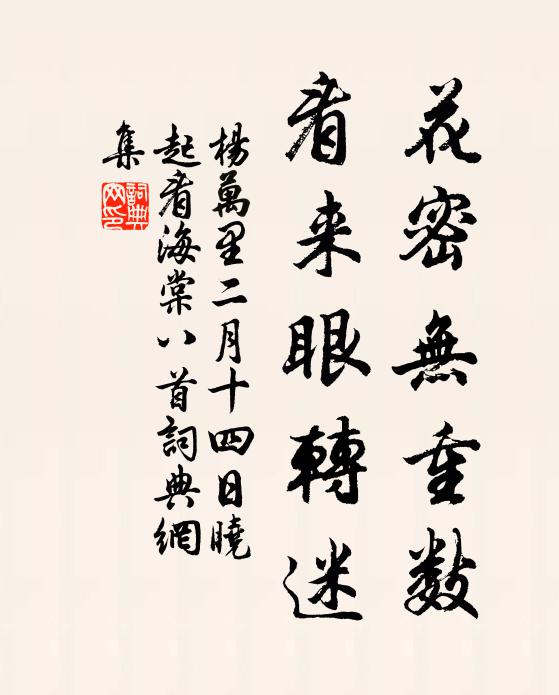 花密無重数
看来眼轉迷
楊萬里二月十四日曉
起看海棠八首詞典網
集
詞典
网印